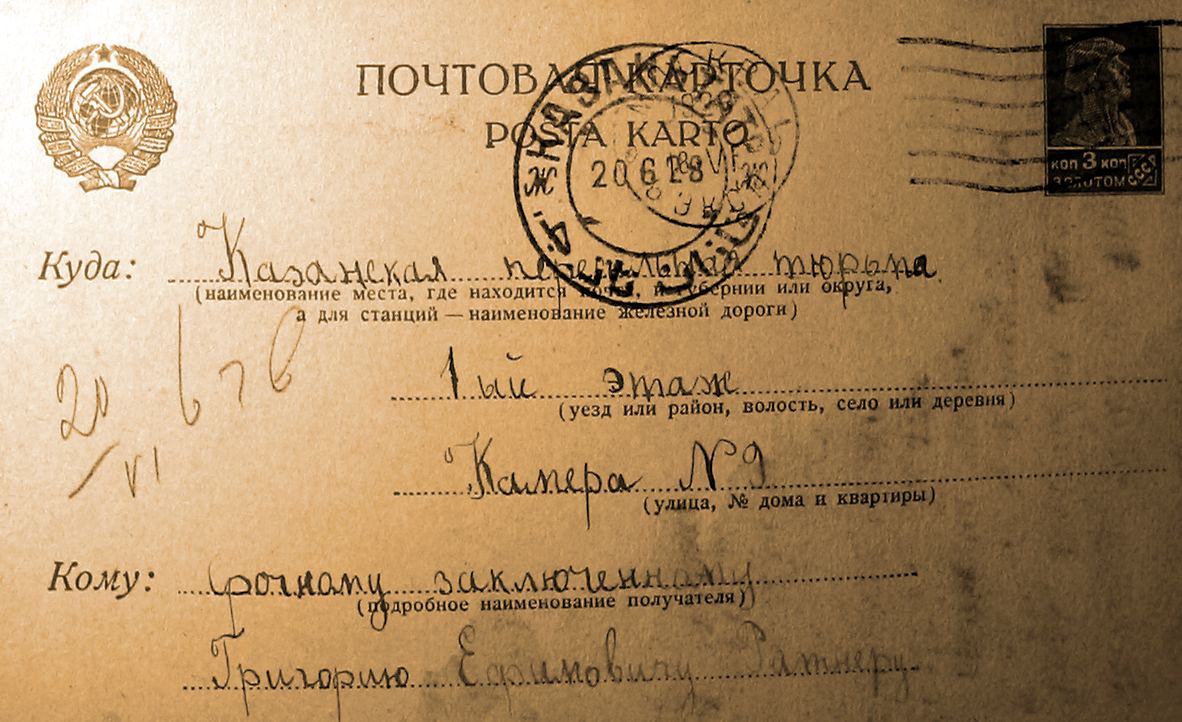 ПОЧТОВАЯ КАРТОЧКА
POŜTA KARTO
коп 3 коп
золотом
СССР
КАЗАНЬ
20 6 28
Куда: Казанская пересыльная тюрьма
(наименование места, где находится почта, и губернии или округа,
а для станций — наименование железной дороги)
1ый этаж
(уезд или район, волость, село или деревня)
20
VI
Камера № 9
(улица, № дома и квартиры)
Кому: срочному заключенному
(подробное наименование получателя)
Григорию Ефимовичу Ратнеру.